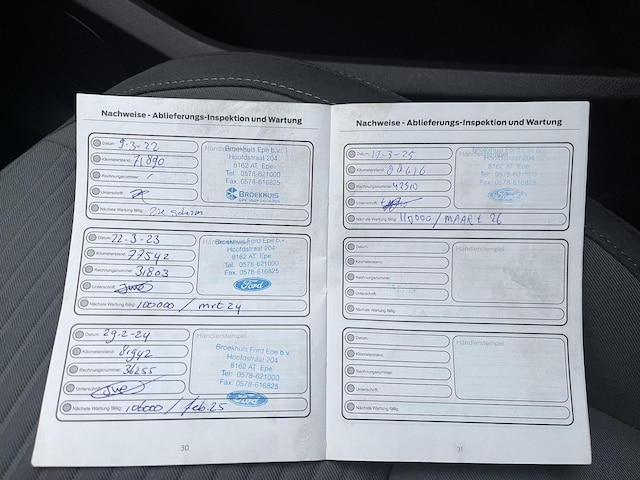 Nachweise - Ablieferungs-Inspektion und Wartung
Datum: 9-3-22
Kilometerstand: 71890
Rechnungsnummer:
Unterschrift:
Nächste Wartung fällig: Zie scherm
Händlerstempel
Broekhuis Epe b.v.
Hoofdstraat 204
8162 AT Epe
Tel: 0578-621000
Fax: 0578-616825
BROEKHUIS
Datum: 22-3-23
Kilometerstand: 77542
Rechnungsnummer: 31803
Unterschrift:
Nächste Wartung fällig: 100000 / mrt 24
Broekhuis Ford Epe b.v.
Hoofdstraat 204
8162 AT Epe
Tel: 0578-621000
Fax: 0578-616825
Ford
Datum: 29-2-24
Kilometerstand: 81942
Rechnungsnummer: 36255
Unterschrift:
Nächste Wartung fällig: 106000 / feb. 25
Händlerstempel
Broekhuis Ford Epe b.v.
Hoofdstraat 204
8162 AT Epe
Tel: 0578-621000
Fax: 0578-616825
Ford
30
Nachweise - Ablieferungs-Inspektion und Wartung
Datum:
Kilometerstand:
Rechnungsnummer: 42510
Unterschrift:
Nächste Wartung fällig: / MAART 26
Händlerstempel
Hoofdstraat 204
8162 AT Epe
Tel: 0578-621000
Fax: 0578-616825
Ford
Datum:
Kilometerstand:
Rechnungsnummer:
Unterschrift:
Nächste Wartung fällig:
Händlerstempel
Datum:
Kilometerstand:
Rechnungsnummer:
Unterschrift:
Nächste Wartung fällig:
Händlerstempel
31